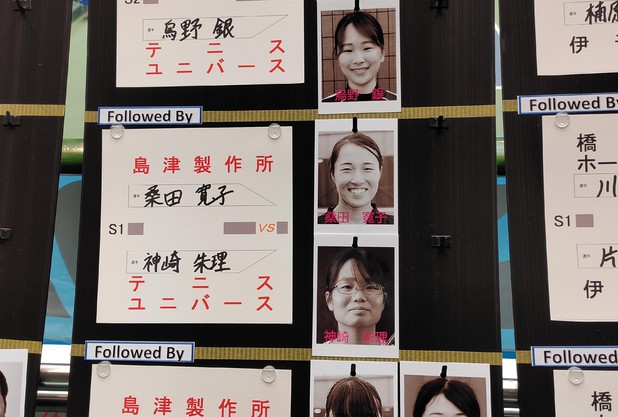 S2
選手 鳥野 銀
テニス
ユニバース
鳥野 銀
Followed By
島津製作所
選手 桑田 寛子
S1 VS
選手 神崎 朱理
テニス
ユニバース
桑田 寛子
神崎 朱理
Followed By
島津製作所
楠原
伊
Followed By
橋
ホー
選手 川
S1
選手 片
伊
Followed By
橋